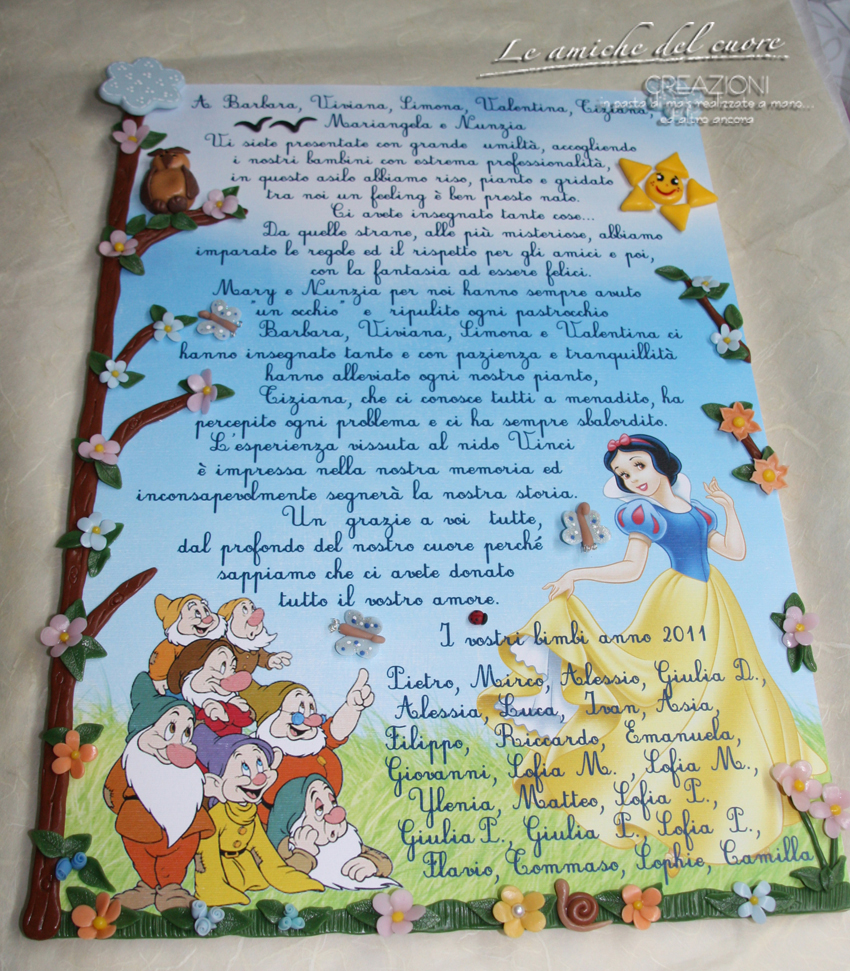 Le amiche del cuore
CREAZIONI
in pasta di mais realizzate a mano...
ed altro ancora
A Barbara, Viviana, Simona, Valentina, Tiziana,
Mariangela e Nunzia
Vi siete presentate con grande umiltà, accogliendo
i nostri bambini con estrema professionalità,
in questo asilo abbiamo riso, pianto e gridato
tra noi un feeling è ben presto nato.
Ci avete insegnato tante cose...
Da quelle strane, alle più misteriose, abbiamo
imparato le regole ed il rispetto per gli amici e poi,
con la fantasia ad essere felici.
Mary e Nunzia per noi hanno sempre avuto
"un occhio" e ripulito ogni pastrocchio
Barbara, Viviana, Simona e Valentina ci
hanno insegnato tanto e con pazienza e tranquillità
hanno alleviato ogni nostro pianto,
Tiziana, che ci conosce tutti a menadito, ha
percepito ogni problema e ci ha sempre sbalordito.
L'esperienza vissuta al nido Vinci
è impressa nella nostra memoria ed
inconsapevolmente segnerà la nostra storia.
Un grazie a voi tutte,
dal profondo del nostro cuore perché
sappiamo che ci avete donato
tutto il vostro amore.
I vostri bimbi anno 2011
Pietro, Mirco, Alessio, Giulia D.,
Alessia, Luca, Ivan, Asia,
Filippo, Riccardo, Emanuela,
Giovanni, Sofia M. , Sofia M.,
Ylenia, Matteo, Sofia P.,
Giulia P., Giulia P., Sofia P.,
Flavio, Tommaso, Sophie, Camilla